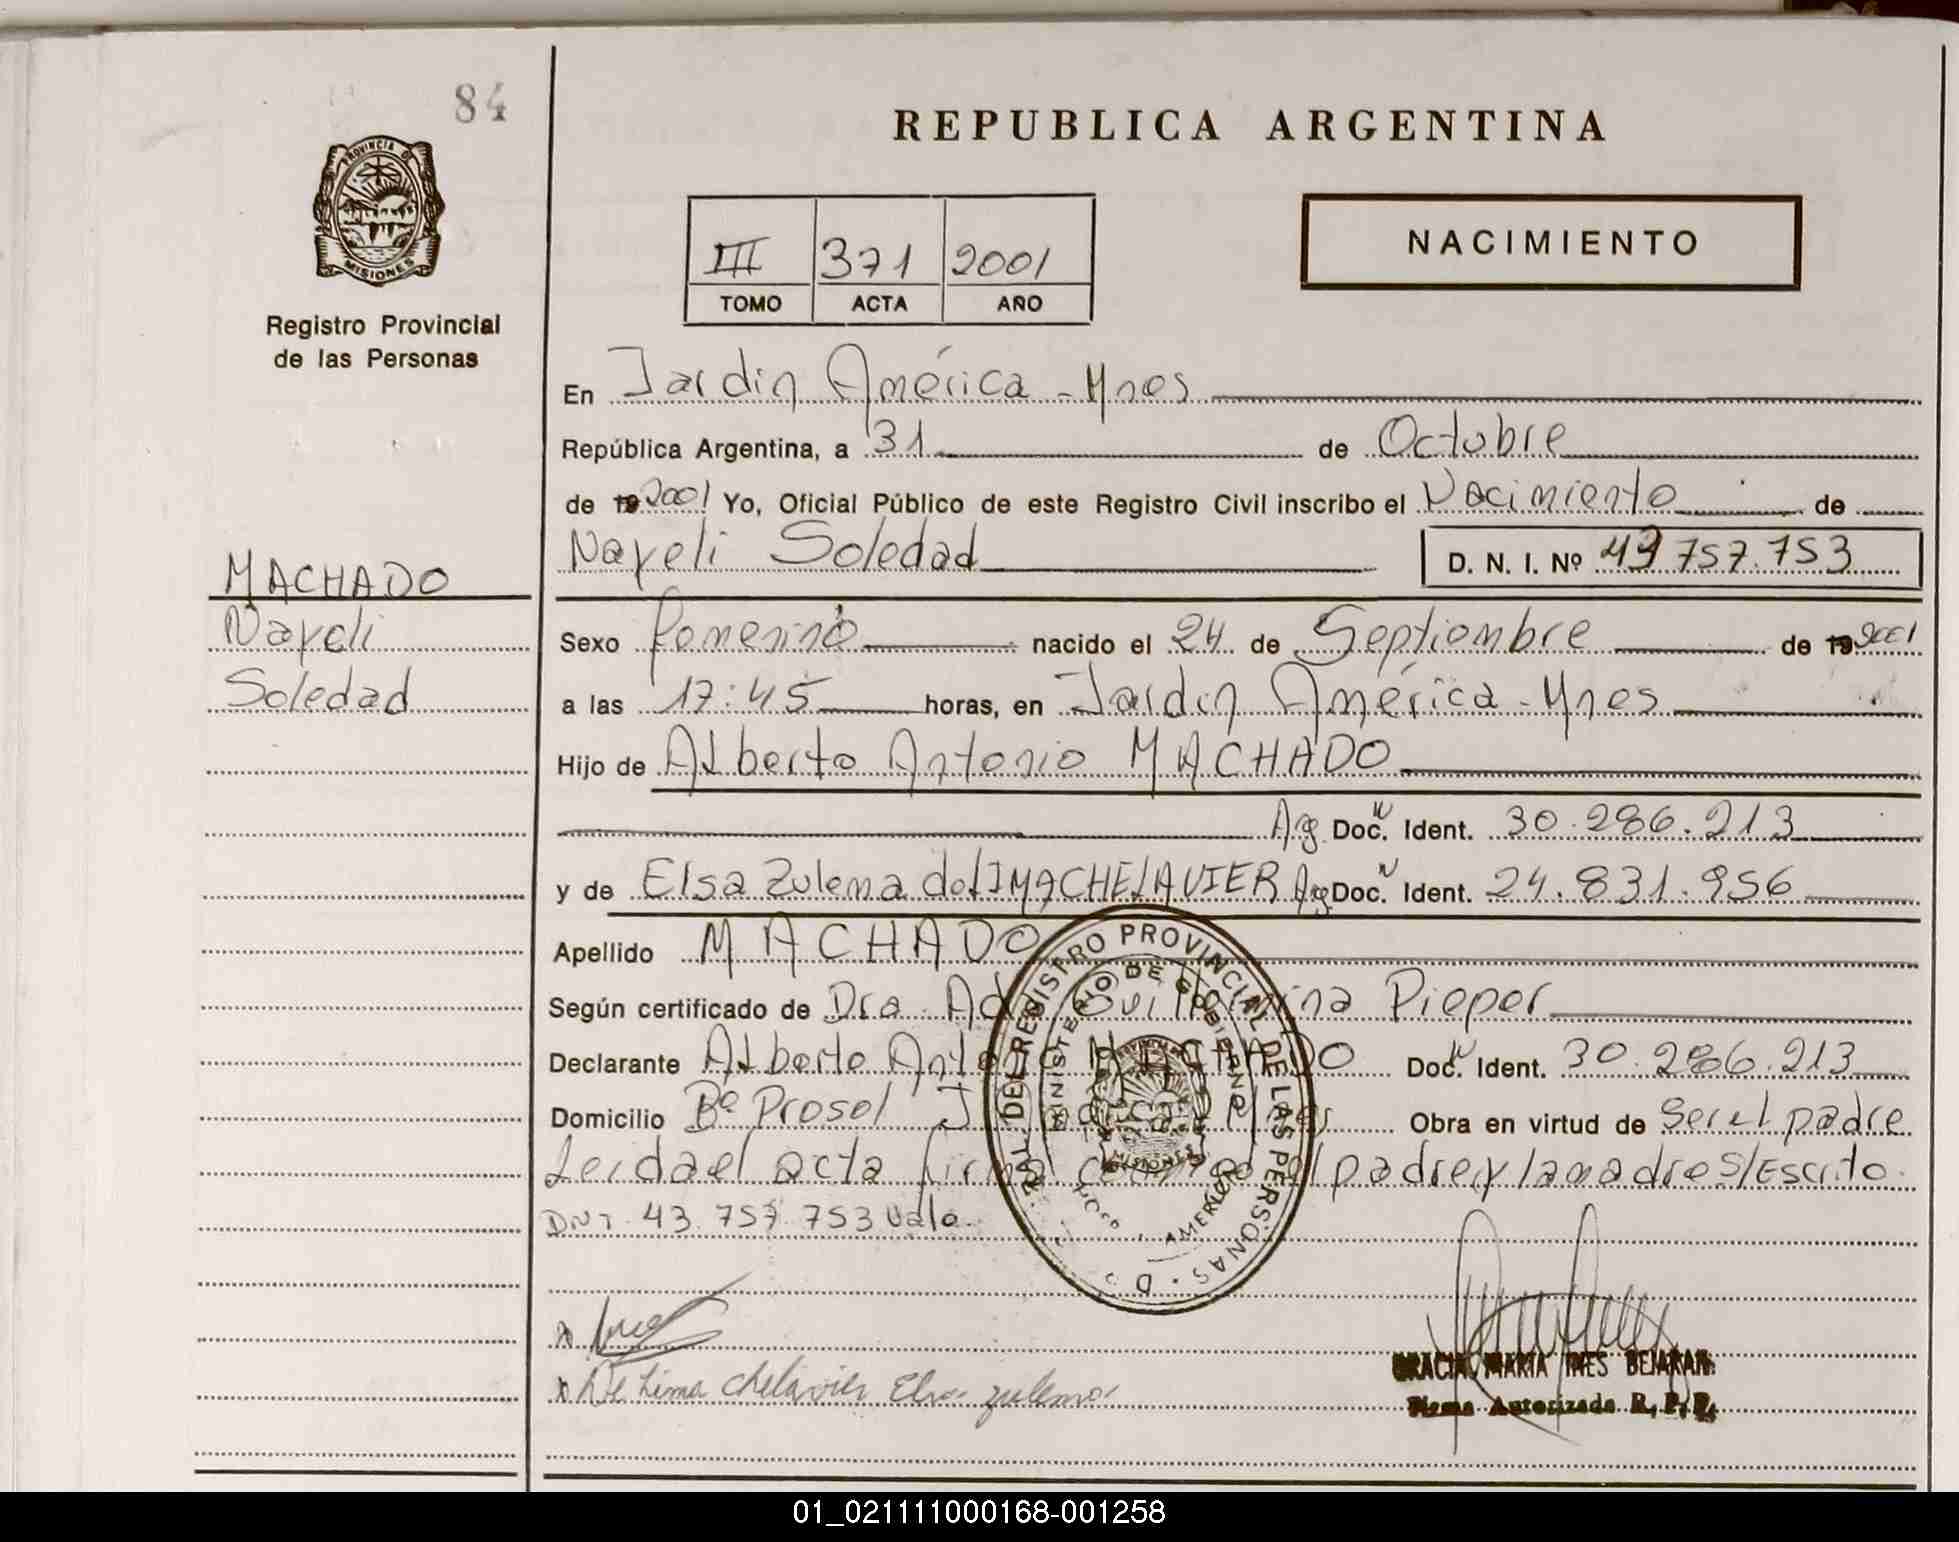 84
PROVINCIA D
MISIONES
Registro Provincial
de las Personas
REPUBLICA ARGENTINA
III 371 2001
TOMO ACTA AÑO
NACIMIENTO
En Jardin América - Mnes
República Argentina, a 31 de Octubre
de 19 2001 Yo, Oficial Público de este Registro Civil inscribo el Nacimiento de
Nayeli Soledad
D. N. I. Nº 43 757.753
MACHADO
Nayeli
Soledad
Sexo femenino nacido el 24 de Septiembre de 19 2001
a las 17:45 horas, en Jardin América - Mnes
Hijo de Alberto Antonio MACHADO
Arg Doc. Ident. 30.286.213
y de Elsa Zulema de LIMACHELAVIER Arg Doc. Ident. 24.831.956
Apellido MACHADO
Según certificado de Dra. Pieper
Declarante Alberto Antonio MACHADO Doc. Ident. 30.286.213
Domicilio Bº Prosol J. América Mnes Obra en virtud de Ser el padre
Leida el acta firma conmigo el padre y la madre S/Escrito
DNI. 43.757.753 Vale.
REGISTRO PROVINCIAL DE LAS PERSONAS
MINISTERIO DE GOBIERNO
MISIONES
AMERICA
x
x De Lima Chelavier Elsa zulema
GRACIA MARIA INES BEJARAN
Firma Autorizada R. P. P.
01_021111000168-001258